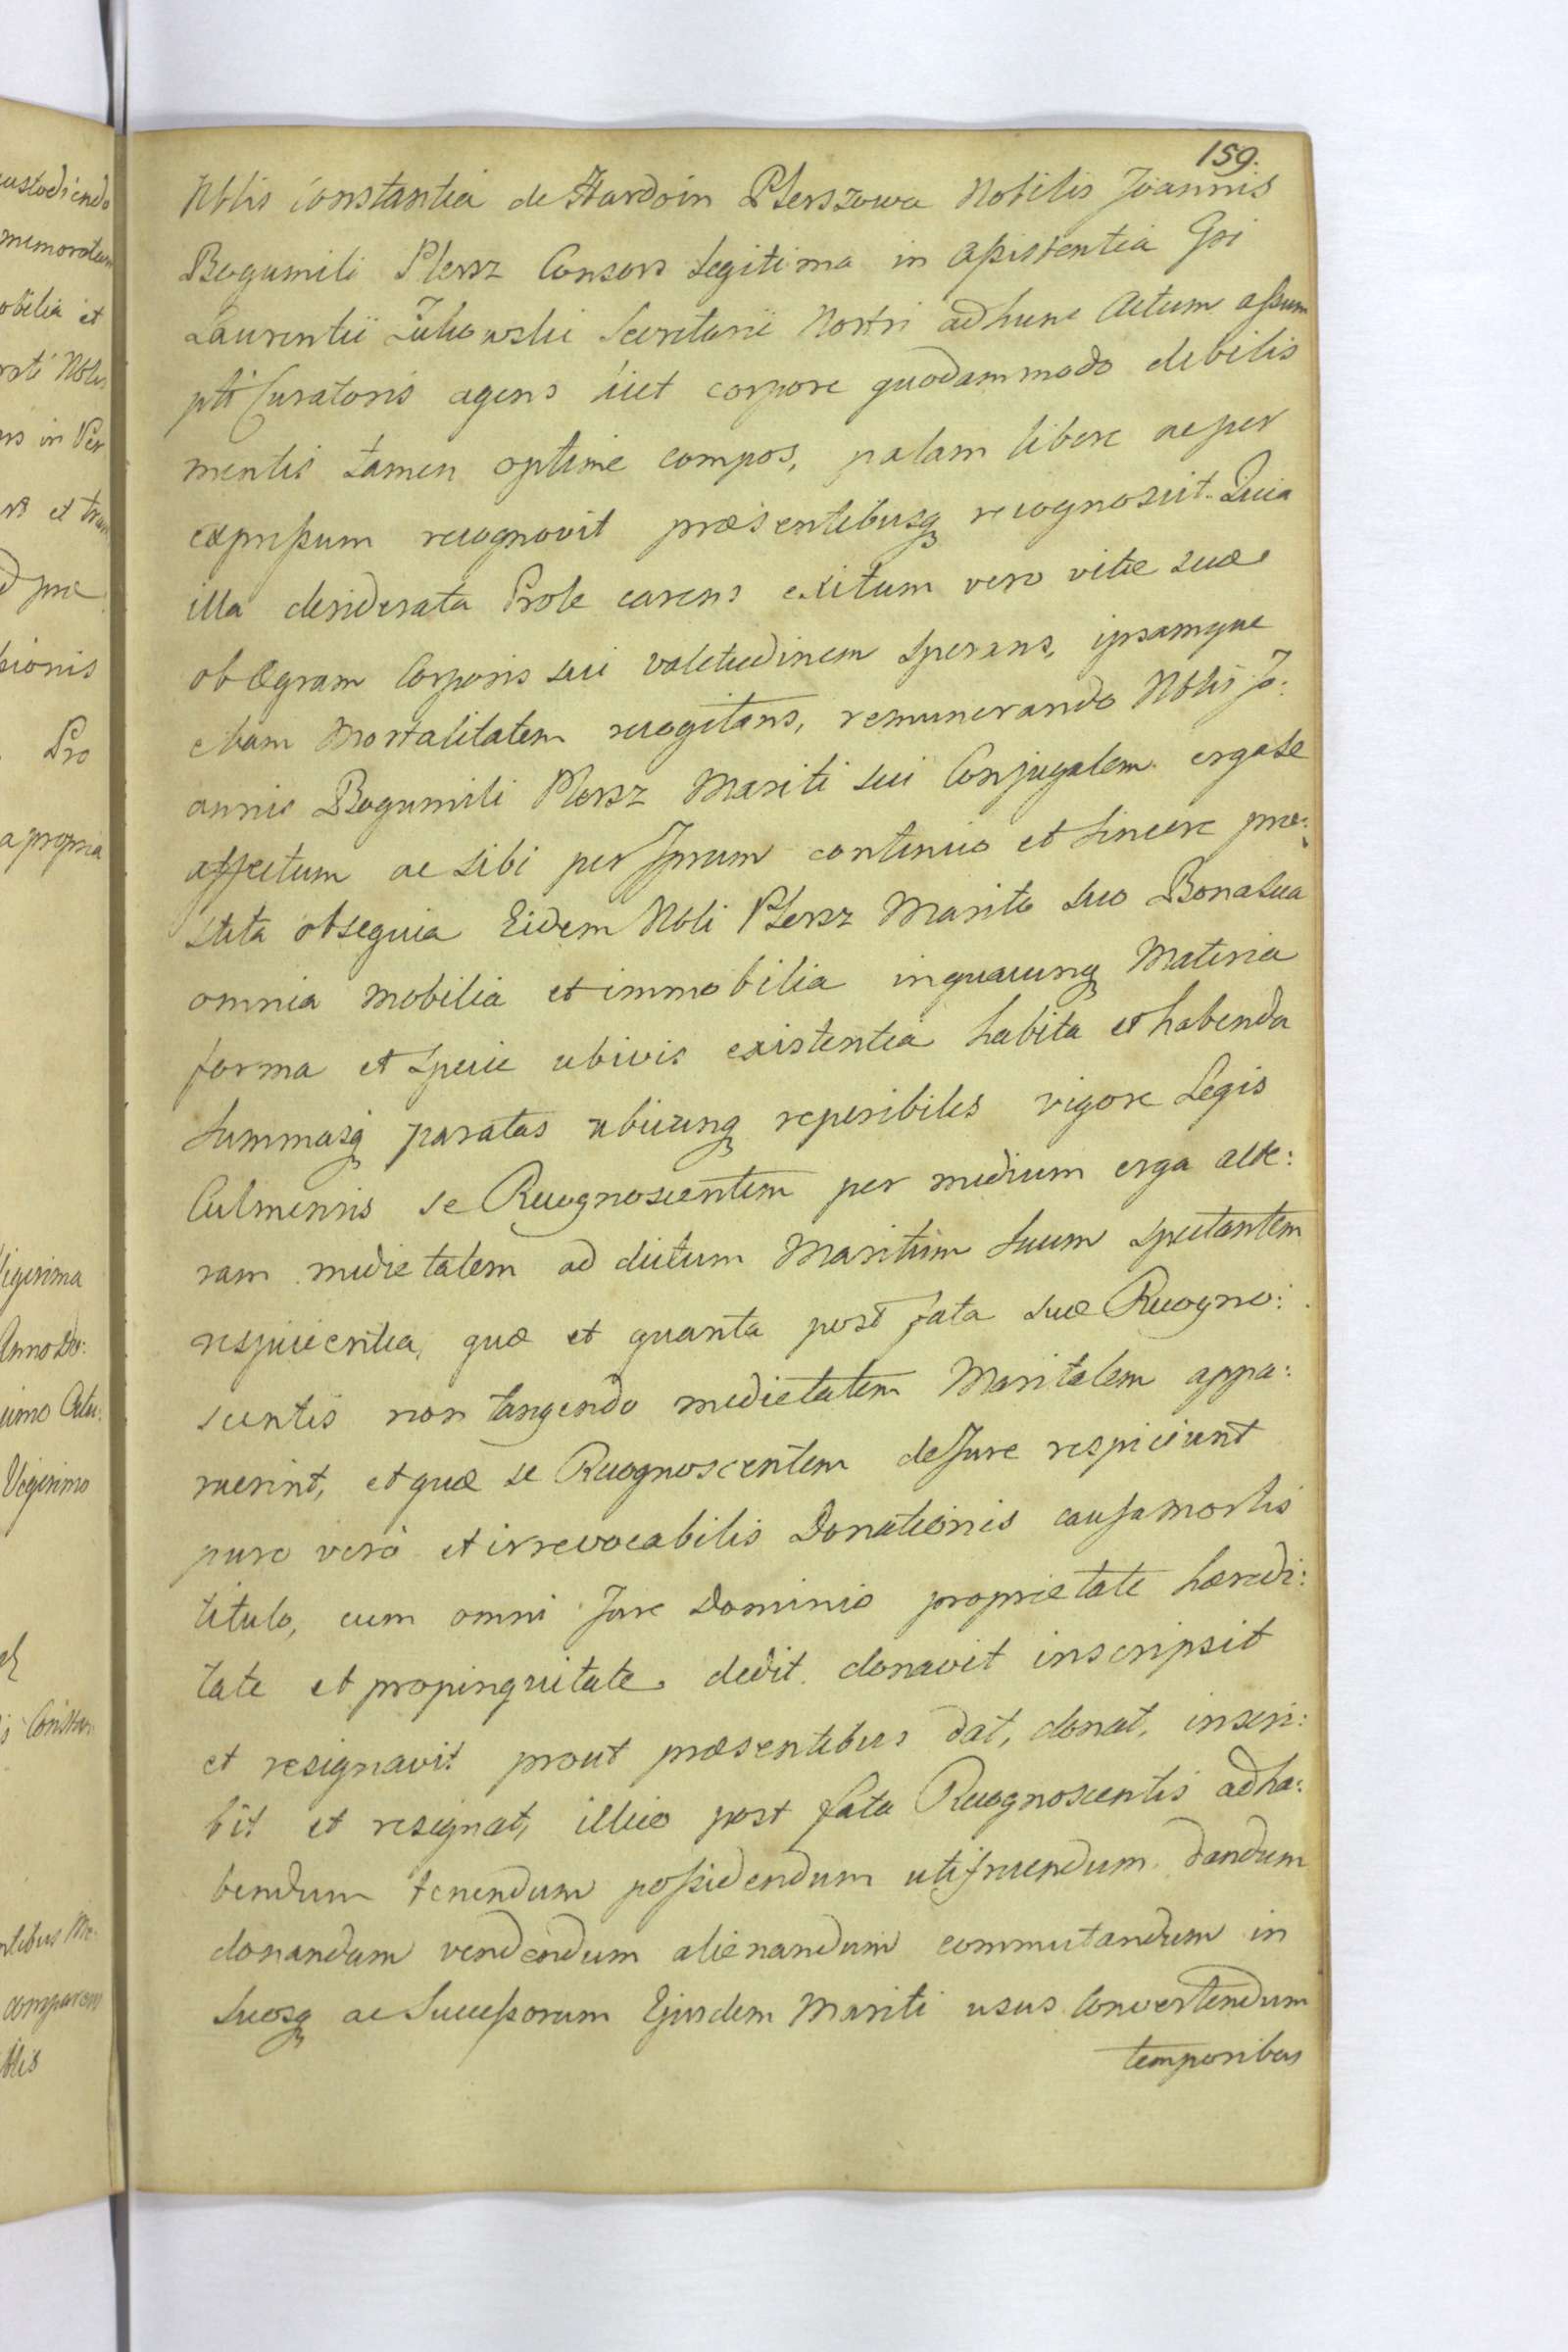 159.
Nblis Constantia de Hardoin Plerszowa Nobilis Joannis
Bogumili Plersz Consors Legitima in aßistentia Gsi
Laurentii Żukowski Secretarii Nostri ad hunc Actum aßum
pti Curatoris agens licet corpore quodammodo debilis
mentis tamen optime compos, palam libere ac per
expreßum recognovit præsentibusq recognoscit. Quia
illa desiderata Prole carens exitum vero vitæ suæ
ob ægram Corporis sui valetudinem sperans, ipsamque
etiam Mortalitatem recogitans, remunerando Nblis Jo:
annis Bogumili Plersz Mariti sui Conjugalem erga se
affectum ac sibi per Ipsum continuo et sincere præ:
stita obsequia Eidem Nbli Plersz Marito suo Bona sua
omnia mobilia et immobilia in quacunq Materia
forma et specie ubivis existentia habita et habenda
Summasq paratas ubicunq reperibiles vigore Legis
Culmensis se Recognoscentem per medium erga alte:
ram medietatem ad dictum Maritum suum spectantem
respicientia, quæ et quanta post fata suæ Recogno:
scentis non tangendo medietatem Maritalem appa:
ruerint, et quæ se Recognoscentem de Jure respiciunt
puro vero et irrevocabilis Donationis causa mortis
titulo, cum omni Jure Dominio proprietate hæredi:
tate et propinquitate dedit donavit inscripsit
et resignavit prout præsentibus dat, donat, inscri:
bit et resignat, illico post fata Recognoscentis ad ha:
bendum tenendum poßidendum utifruendum dandum
donandum vendendum alienandum commutandum in
suosq ac Succeßorum Ejusdem Mariti usus convertendum
temporibus
custodiendo
memoratum
obilia et
Nblis
ns in Per
et tran
Pro
a propria
Vigesima
Anno Do:
Vigesimo
Constan
ntibus Me:
comparens
blis